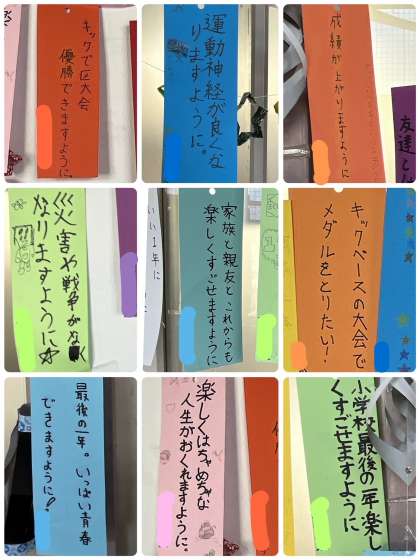 キックで区大会
優勝できますように
運動神経が良くな
りますように。
成績が上がりますように
友達と
災害や戦争がなく
なりますように
いい1年に
家族と親友とこれからも
楽しくすごせますように
キックベースの大会で
メダルをとりたい!
最後の一年。いっぱい青春
できますように!
楽しくはちゃめちゃな
人生がおくれますように。
小学校最後の一年楽し
くすごせますように